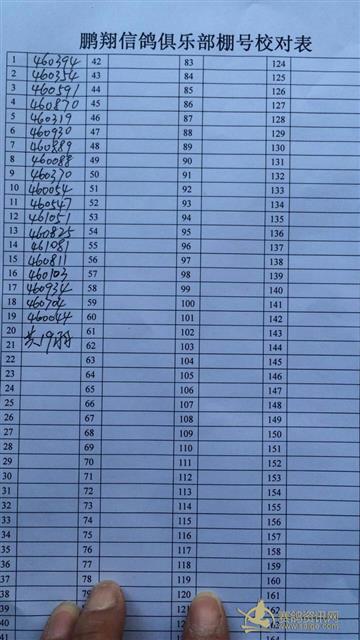 鹏翔信鸽俱乐部棚号校对表
1 460394 42 83 124
2 460354 43 84 125
3 460591 44 85 126
4 460870 45 86 127
5 460319 46 87 128
6 460930 47 88 129
7 460889 48 89 130
8 460088 49 90 131
9 460370 50 91 132
10 460054 51 92 133
11 460547 52 93 134
12 461051 53 94 135
13 460825 54 95 136
14 461081 55 96 137
15 460811 56 97 138
16 460103 57 98 139
17 460934 58 99 140
18 460704 59 100 141
19 460044 60 101 142
20 共19羽 61 102 143
21 62 103 144
22 63 104 145
23 64 105 146
24 65 106 147
25 66 107 148
26 67 108 149
27 68 109 150
28 69 110 151
29 70 111 152
30 71 112 153
31 72 113 154
32 73 114 155
33 74 115 156
34 75 116 157
35 76 117 158
36 77 118 159
37 78 119 160
38 79 120 161
39 121 162
40
赛鸽资讯网
www.saige.com